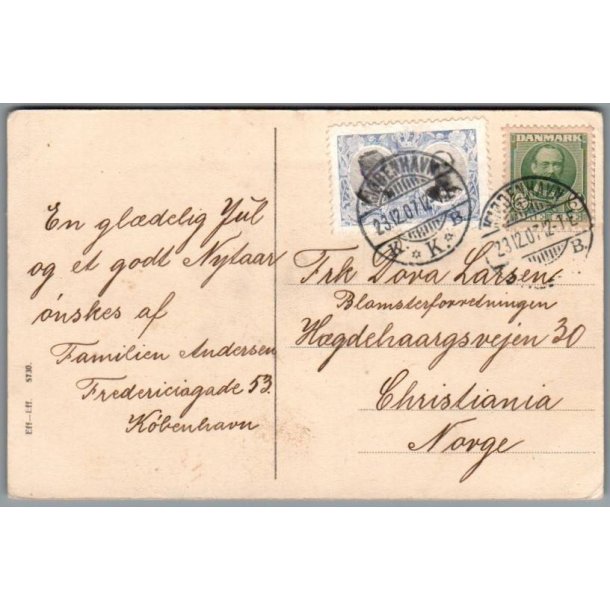 En glædelig Jul
og et godt Nytaar
ønskes af
Familien Andersen
Fredericiagade 53.
København
Eff—Eff. 5730.
KØBENHAVN
23.12.07.12-1.E
K.K. B.
DANMARK
KØBENHAVN
23.12.07.12-1.E
B.
Frk Dova Larsen
Blomsterforretningen
Hægdehaargsvejen 30
Christiania
Norge